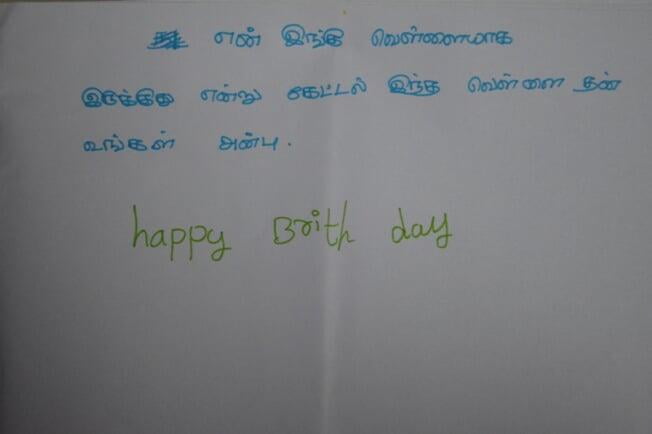 என் இங்கே வெள்ளைமாக
இருக்கிது என்று கேட்டல் இந்த வெள்ளை தன்
உங்கள் அன்பு.
happy Brith day